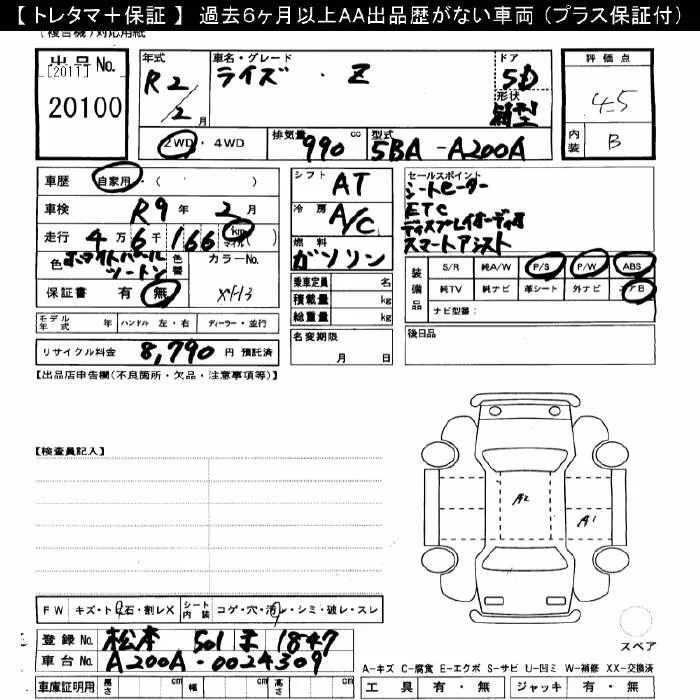 【 トレタマ＋保証 】 過去6ヶ月以上AA出品歴がない車両（プラス保証付）
(複合機)対応用紙
出品No.
[2011]
20100
年式
R2/2月
車名・グレード
ライズ ・ Z
ドア
5D
形状
箱型
評価点
4.5
内装
B
2WD・4WD
排気量 990 cc
型式 5BA-A200A
車歴 自家用・( )
車検 R9年 2月
走行 4万 6千 166 km マイル( )
色 ホワイトパール ツートン
色替
カラーNo. X13
保証書 有 無
シフト AT
冷房 A/C
燃料 ガソリン
乗車定員 名
積載量 kg
総重量 kg
セールスポイント
シートヒーター
ETC
ディスプレイオーディオ
スマートアシスト
装備品
S/R 純A/W P/S P/W ABS
純TV 純ナビ 革シート 外ナビ エアB
ナビ型番：
モデル年式 年 ハンドル 左・右 ディーラー・並行
リサイクル料金 8,790 円 預託済
名変期限
月 日
後日品
【出品店申告欄(不良箇所・欠品・注意事項等)】
【検査員記入】
A2
A1
FW キズ・ト石・割レX
シート内装 コゲ・穴・汚レ・シミ・破レ・スレ
登録No. 松本 501 1847
車台No. A200A-0024309
車庫証明用 長さ cm 幅 cm 高さ cm
スペア
A-キズ C-腐食 E-エクボ S-サビ U-凹ミ W-補修 XX-交換済
工具 有・無 ジャッキ 有・無